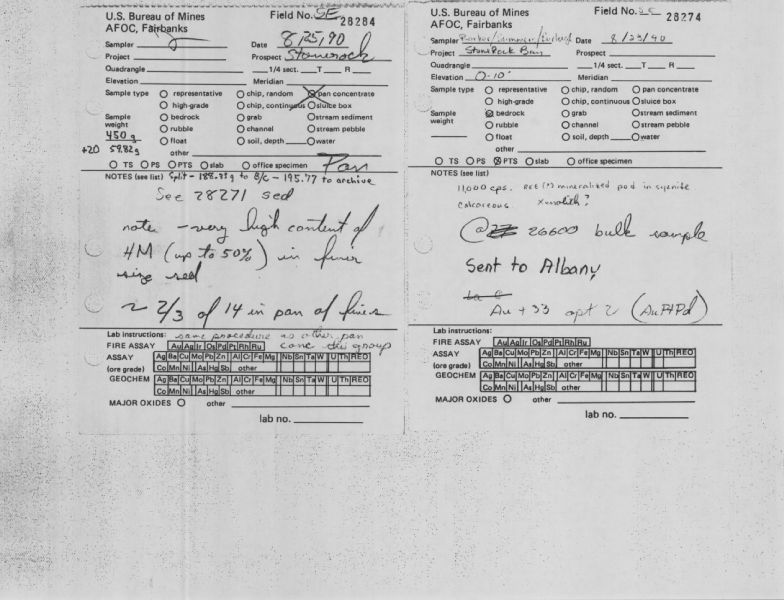 U.S. Bureau of Mines
AFOC, Fairbanks
Field No. SE 28284
Sampler
Date 8/25/90
Project
Prospect Stonerock
Quadrangle 1/4 sect. T R
Elevation Meridian
Sample type
representative chip, random pan concentrate
high-grade chip, continuous sluice box
Sample weight
bedrock grab stream sediment
450 g
rubble channel stream pebble
+20 59.82g
float soil, depth water
other
TS PS PTS slab office specimen Pan
NOTES (see list) Split - 188.33g to B/C - 195.77 to archive
See 28271 sed
note - very high content of
HM (up to 50%) in finer
size sed
~ 2/3 of 14 in pan of fines
Lab instructions: same procedure as other pan
FIRE ASSAY Au Ag Ir Os Pd Pt Rh Ru conc this group
ASSAY Ag Ba Cu Mo Pb Zn Al Cr Fe Mg Nb Sn Ta W U Th REO
(ore grade) Co Mn Ni As Hg Sb other
GEOCHEM Ag Ba Cu Mo Pb Zn Al Cr Fe Mg Nb Sn Ta W U Th REO
Co Mn Ni As Hg Sb other
MAJOR OXIDES other
lab no.
U.S. Bureau of Mines
AFOC, Fairbanks
Field No. SE 28274
Sampler Barker/
Date 8/23/90
Project StoneRock Bay
Prospect
Quadrangle 1/4 sect. T R
Elevation 0-10' Meridian
Sample type
representative chip, random pan concentrate
high-grade chip, continuous sluice box
Sample weight
bedrock grab stream sediment
rubble channel stream pebble
float soil, depth water
other
TS PS PTS slab office specimen
NOTES (see list)
11,000 cps. REE (?) mineralized pod in syenite
calcareous. xenolith?
@ 26600 bulk sample
Sent to Albany
Au + 33 opt 2 (Au Pt Pd)
Lab instructions:
FIRE ASSAY Au Ag Ir Os Pd Pt Rh Ru
ASSAY Ag Ba Cu Mo Pb Zn Al Cr Fe Mg Nb Sn Ta W U Th REO
(ore grade) Co Mn Ni As Hg Sb other
GEOCHEM Ag Ba Cu Mo Pb Zn Al Cr Fe Mg Nb Sn Ta W U Th REO
Co Mn Ni As Hg Sb other
MAJOR OXIDES other
lab no.